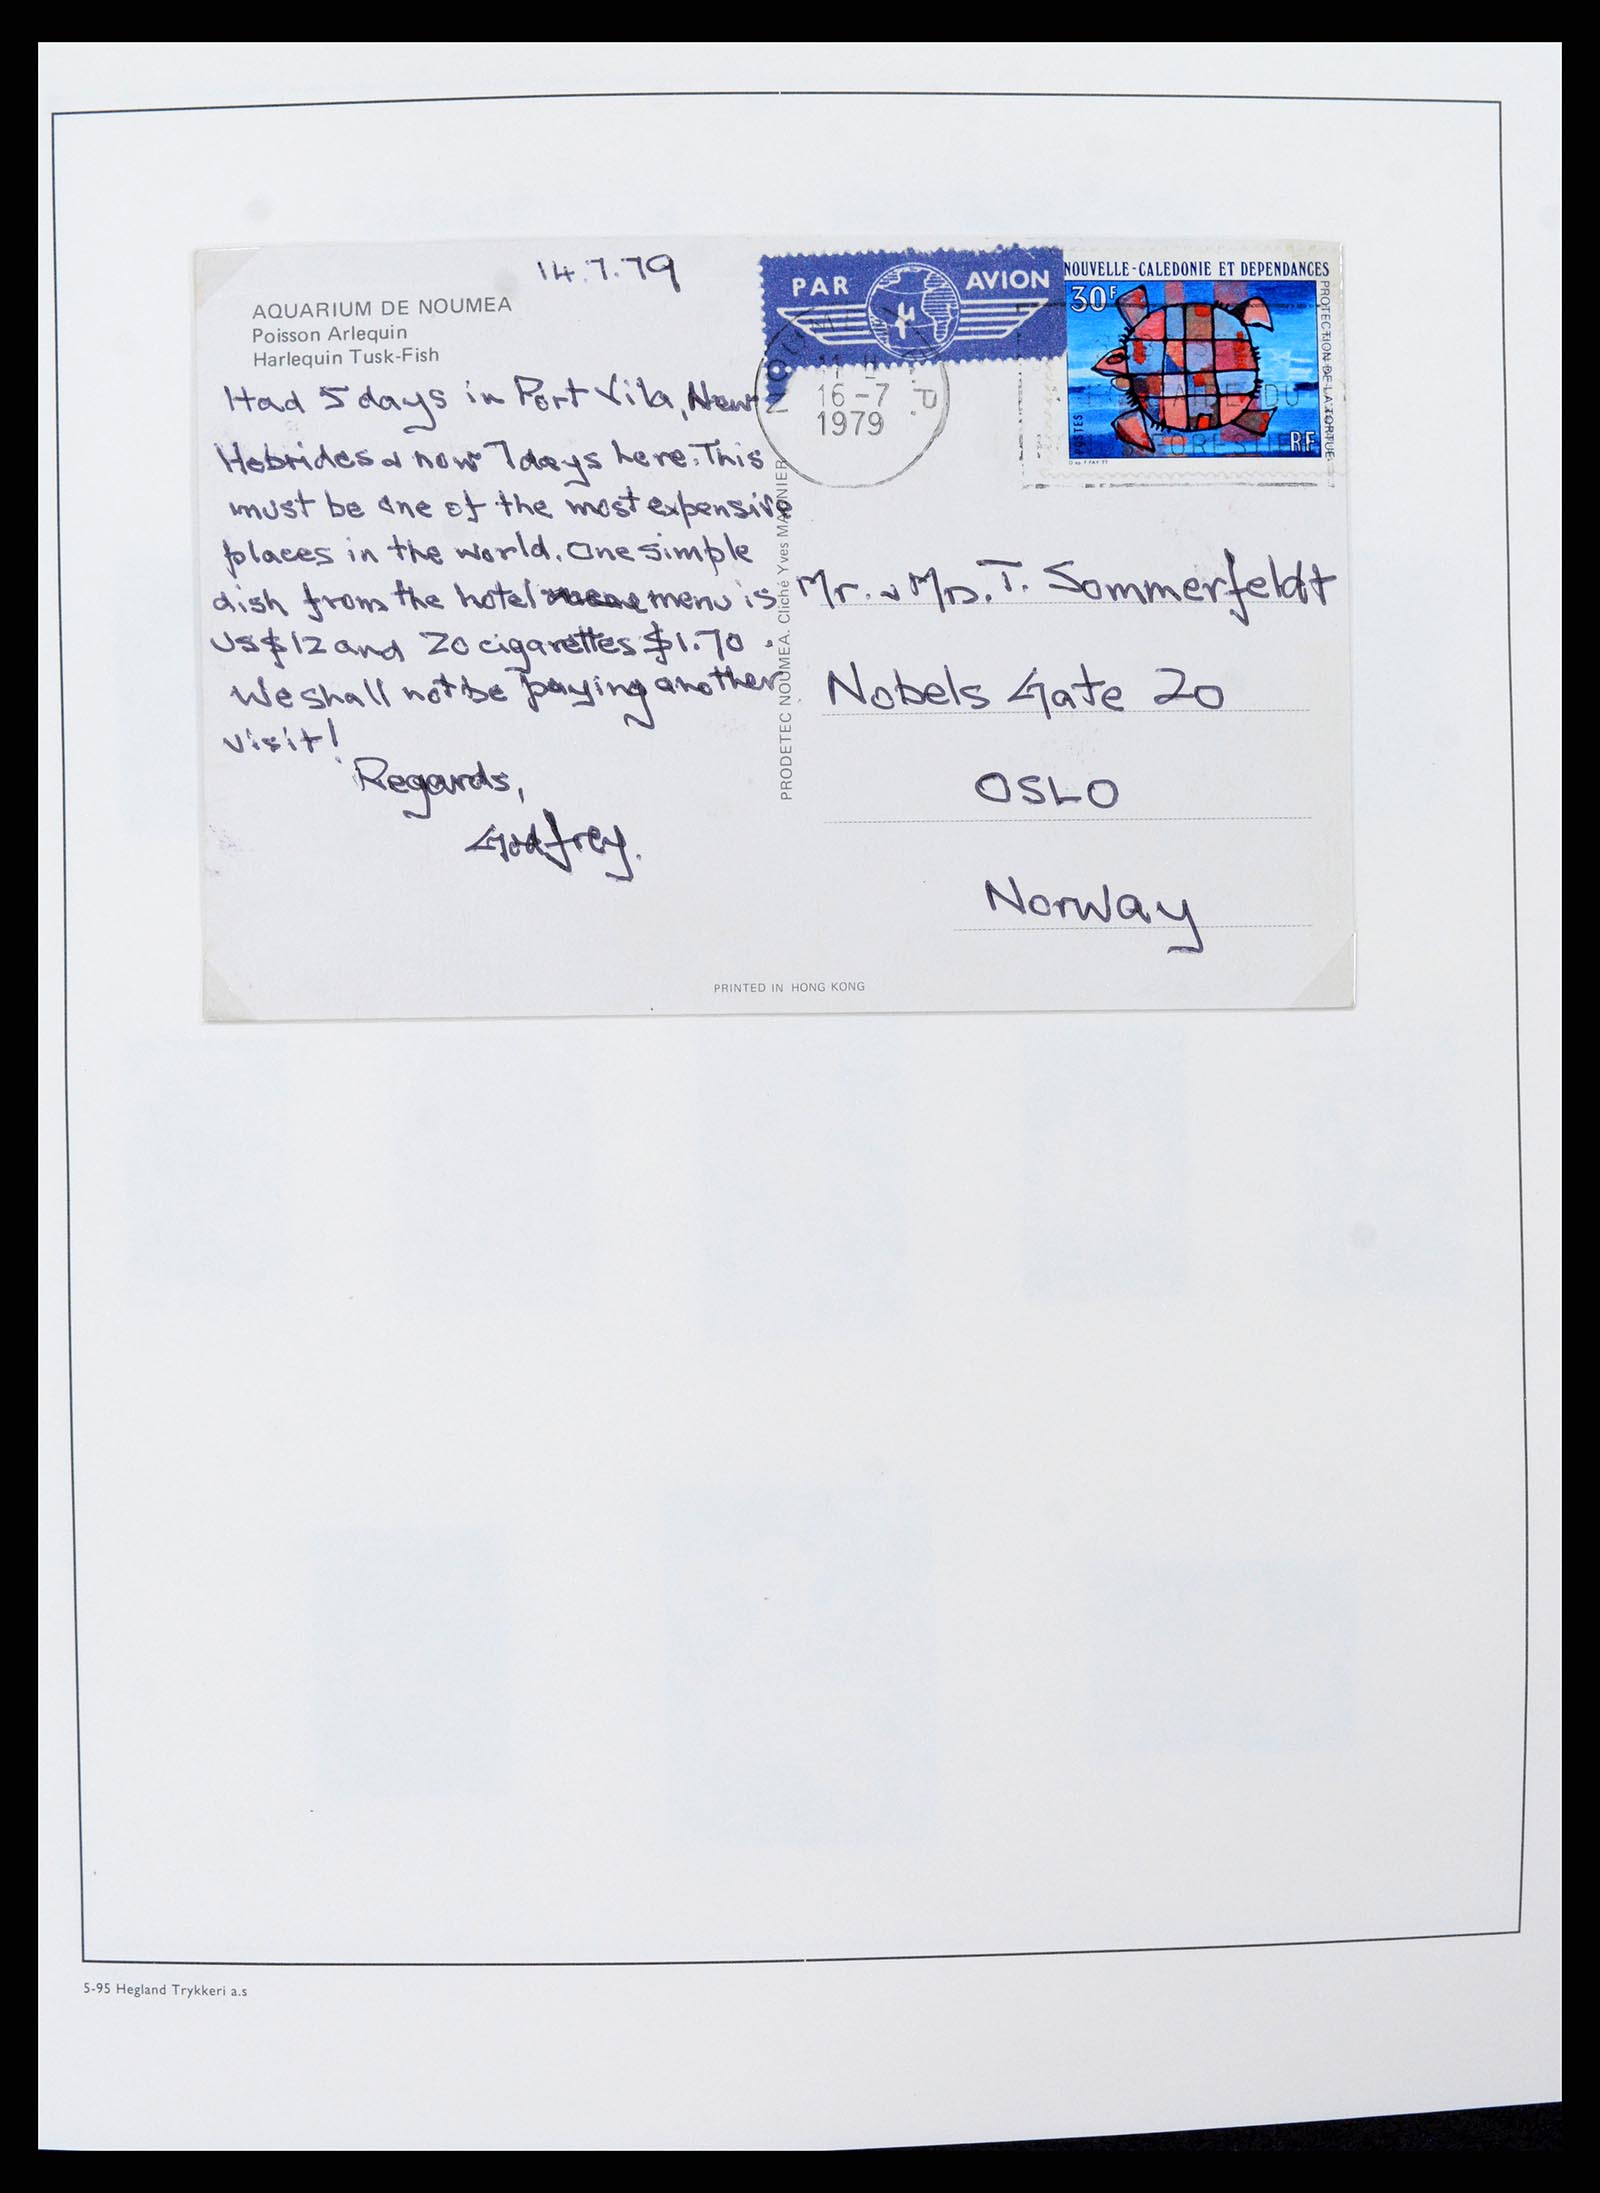 14.7.79
AQUARIUM DE NOUMEA
Poisson Arlequin
Harlequin Tusk-Fish
Had 5 days in Port Vila, New
Hebrides & now 7 days here. This
must be one of the most expensive
places in the world. One simple
dish from the hotel menu is
US$12 and 20 cigarettes $1.70.
We shall not be paying another
visit!
Regards,
Godfrey.
PRODETEC NOUMEA. Cliché Yves MAGNIER
PAR AVION
16-7
1979
NOUVELLE-CALEDONIE ET DEPENDANCES
30F
PROTECTION DE LA TORTUE
POSTES
RF
Mr. & Mrs. T. Sommerfeldt
Nobels Gate 20
OSLO
Norway
PRINTED IN HONG KONG
5-95 Hegland Trykkeri a.s